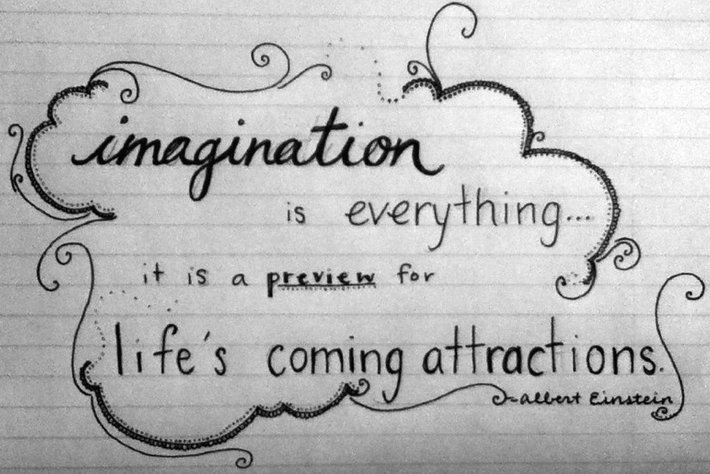 imagination
is everything...
it is a preview for
life's coming attractions.
~albert Einstein